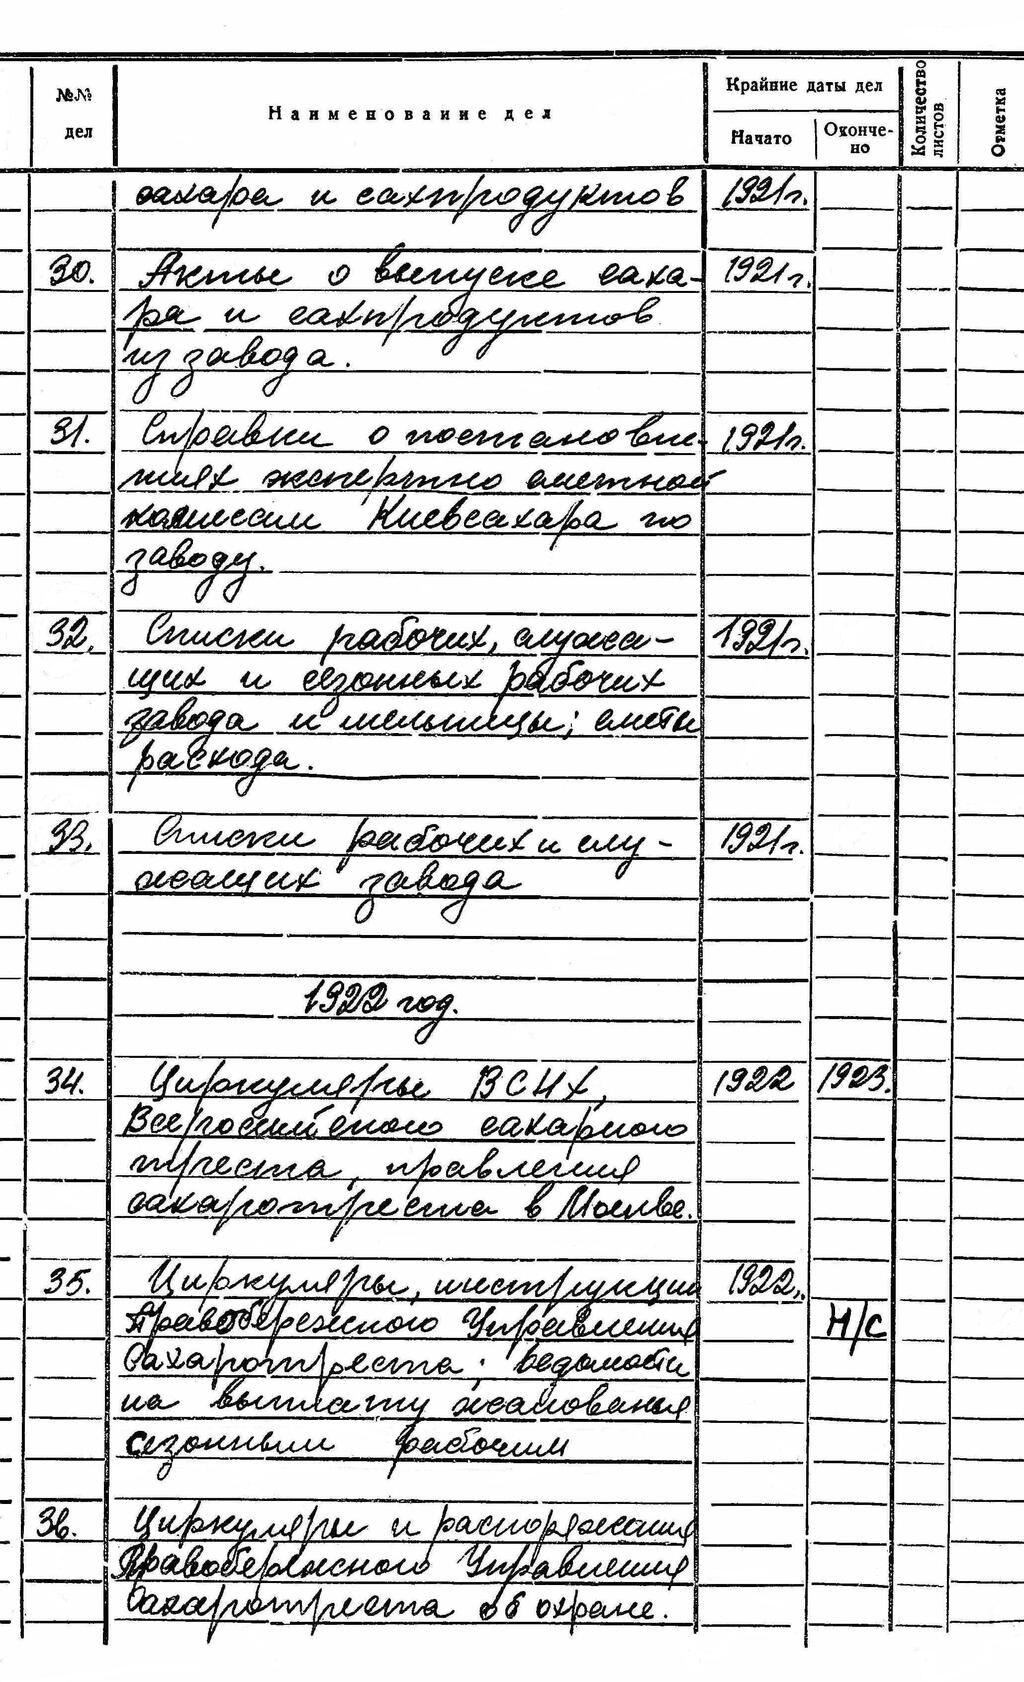 №№ дел
Наименование дел
Крайние даты дел
Начато
Окончено-
но
Количество листов
Отметка
сахара и сахпродуктов 1921г.
30. Акты о выпуске саха- 1921г.
ра и сахпродуктов
из завода.
31. Справки о постановле- 1921г.
ниях экспертно сметной
комиссии Киевсахара по
заводу.
32. Списки рабочих, служа- 1921г.
щих и сезонных рабочих
завода и мельницы; сметы
расхода.
33. Списки рабочих и слу- 1921г.
жащих завода
1922 год.
34. Циркуляры ВСНХ, 1922 1923.
Всероссийского сахарного
треста, правления
сахаротреста в Москве.
35. Циркуляры, инструкции 1922г.
Правобережного Управления Н/С
Сахаротреста; ведомости
на выплату жалованья
сезонным рабочим
36. Циркуляры и распоряжения
Правобережного Управления
Сахаротреста об охране.